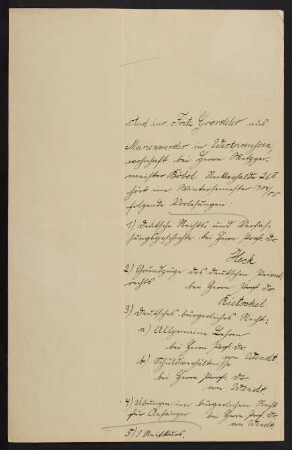 stud. iur. Fritz Goerdeler aus
Marienwerder in Westpreussen,
wohnhaft bei Herrn Metzger-
meister Göbel
hört im Wintersemester 1904/05
folgende Vorlesungen:
1) Deutsche Rechts und Verfas-
sungsgeschichte bei Herrn Prof. Dr.
Heck
2) Grundzüge des deutschen Privat-
rechts bei Herrn Prof. Dr.
Rietschel
3) Deutsches bürgerliches Recht:
a) Allgemeine Lehren
bei Herrn Prof. Dr.
von Wendt
b) Schuldverhältnisse
bei Herrn Prof. Dr.
von Wendt
4) Übungen im bürgerlichen Recht
für Anfänger bei Herrn Prof. Dr.
von Wendt
5) 1 Reitkurs.